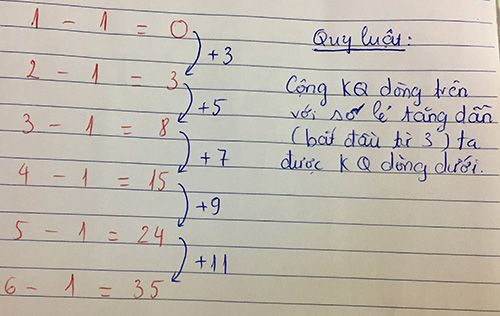 1 - 1 = 0
+3
Quy luật:
2 - 1 = 3
+5
Cộng KQ dòng trên
với số lẻ tăng dần
3 - 1 = 8
(bắt đầu từ 3) ta
+7
được KQ dòng dưới.
4 - 1 = 15
+9
5 - 1 = 24
+11
6 - 1 = 35